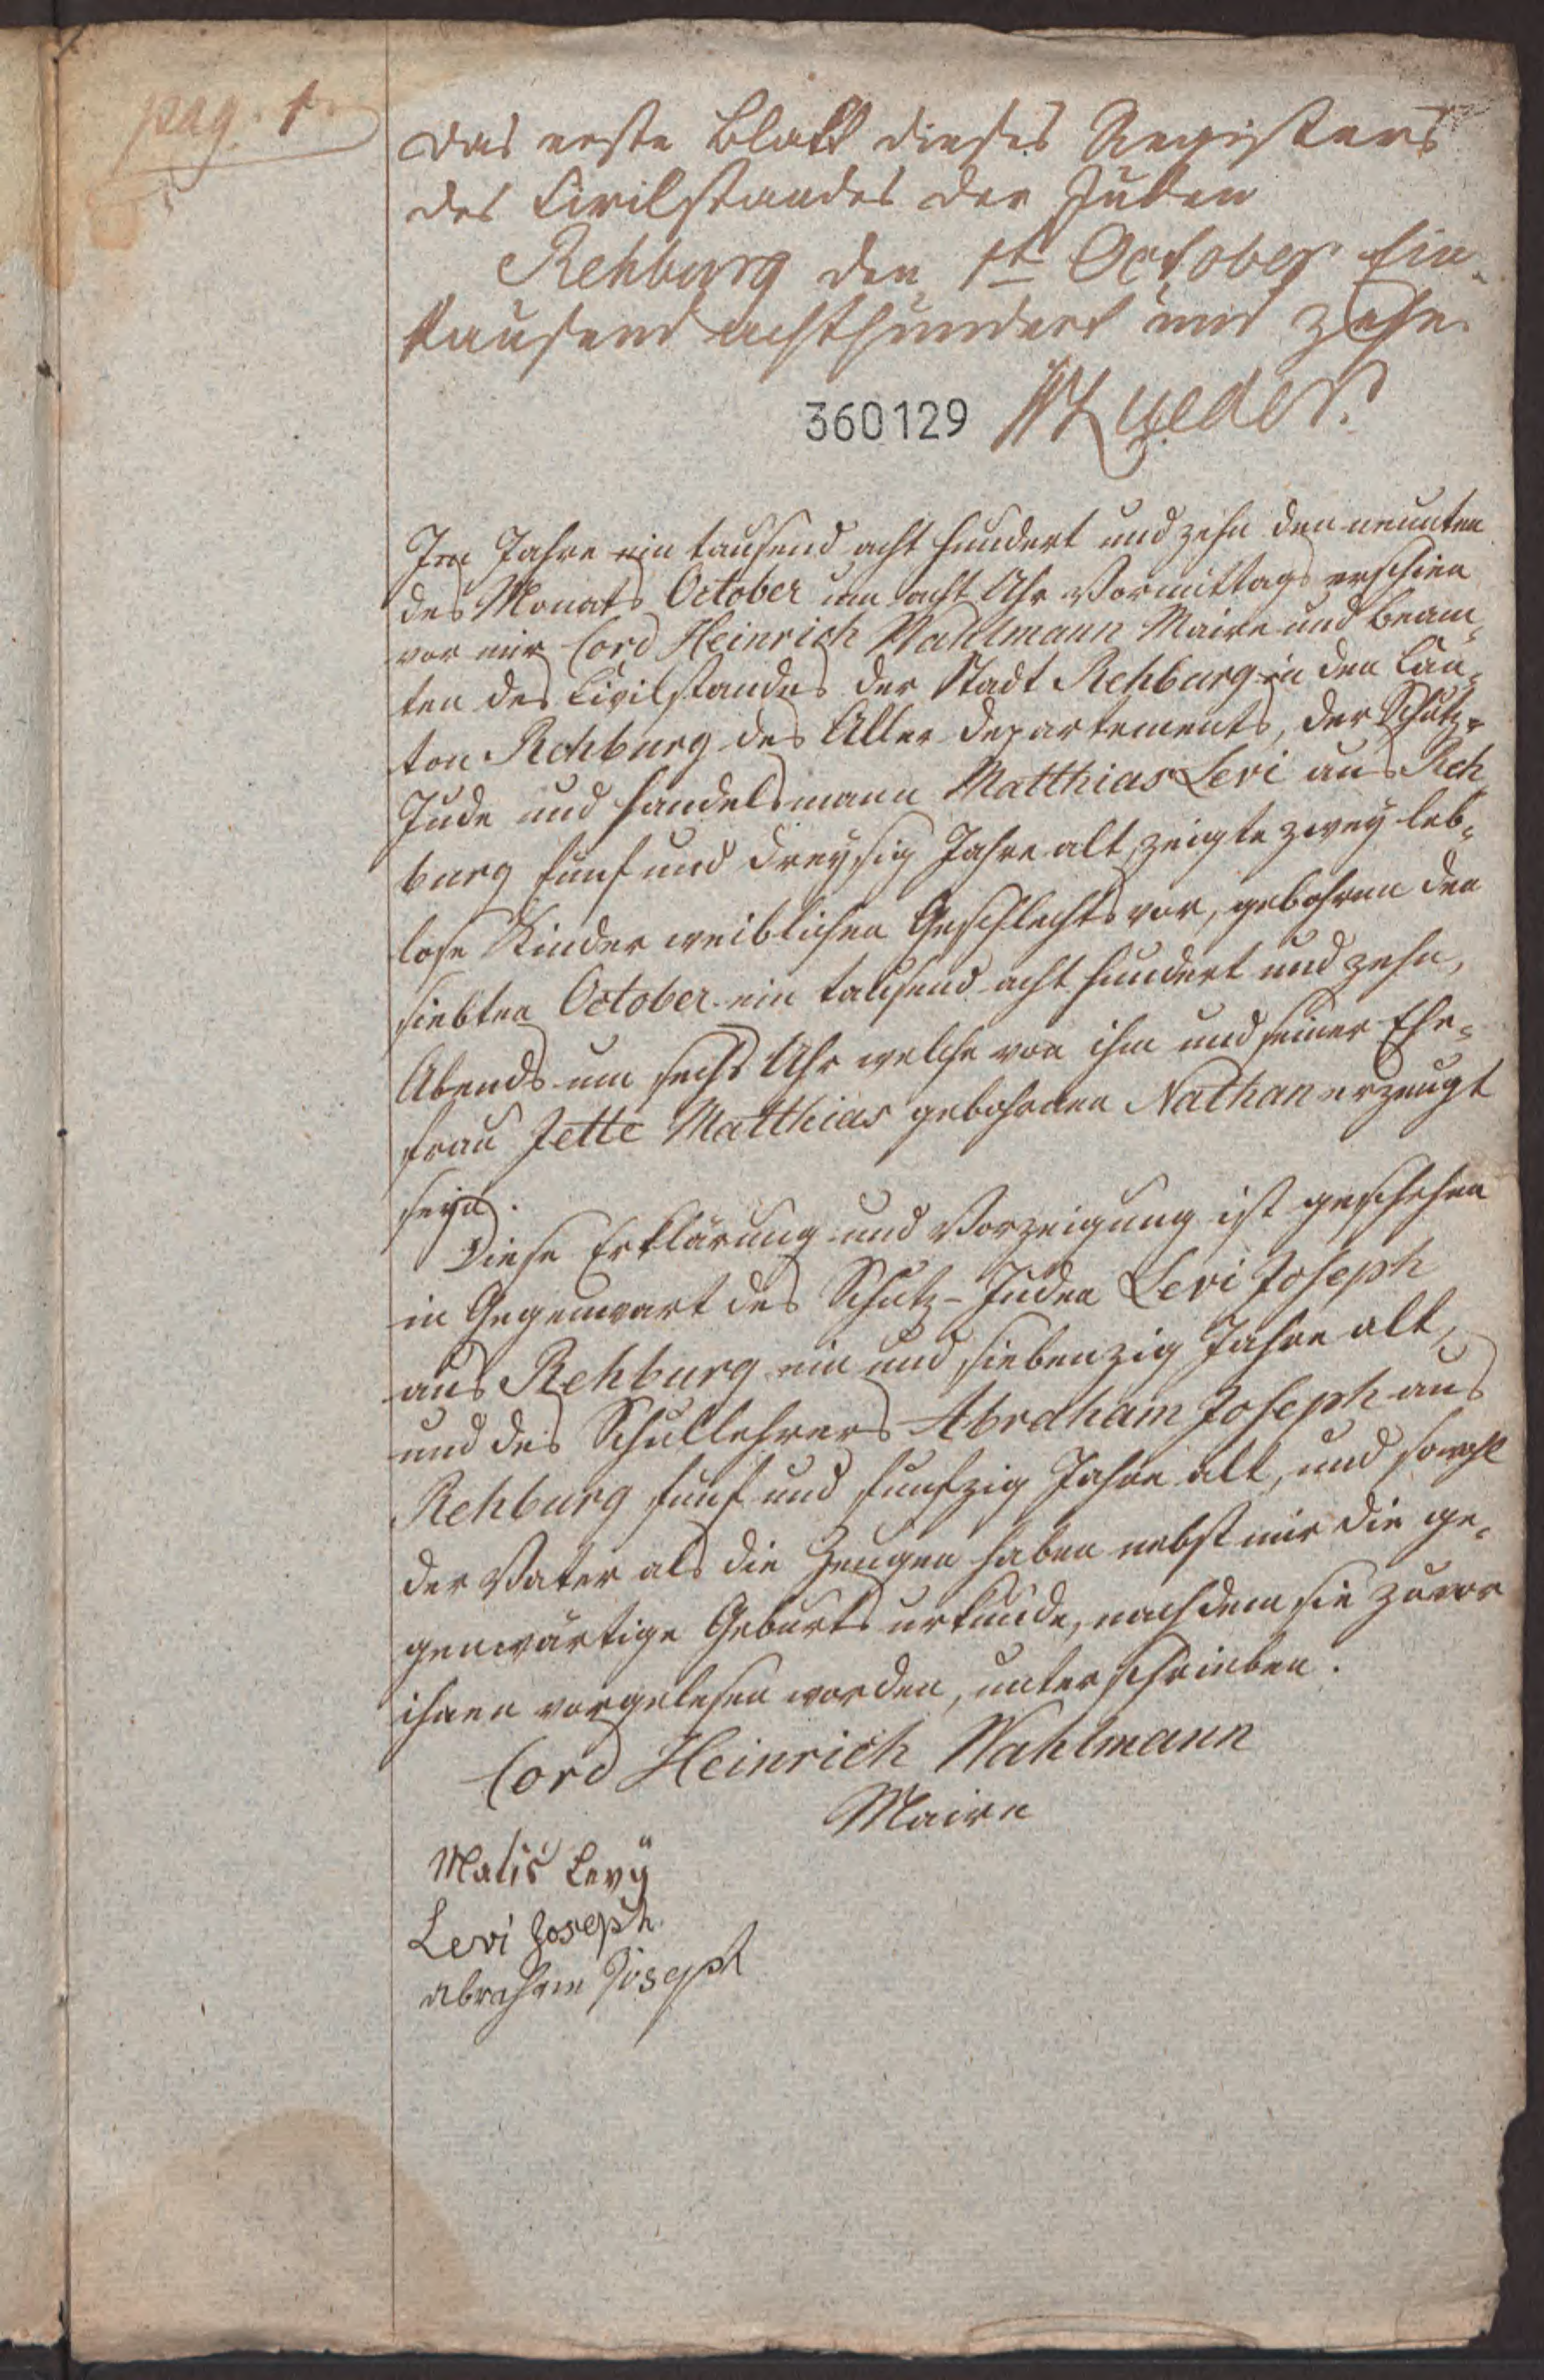 pag. 1.
Das erste Blatt dieses Registers
des Civilstandes der Juden
Rehburg den 1t October Ein-
tausend achthundert und zehn
360129
Im Jahre ein tausend acht hundert und zehn den neunten
des Monats October um acht Uhr Vormittags erschien
vor mir Cord Heinrich Wahlmann Maire und Beam-
ten des Civilstandes der Stadt Rehburg in den Can-
ton Rehburg des Aller Departements, der Schutz-
Jude und Handelsmann Matthias Levi aus Reh
burg fünf und dreysig Jahre alt, zeigte zwey leb-
lose Kinder weiblichen Geschlechts vor, gebohren den
siebten October ein tausend acht hundert und zehn,
Abends um sechs Uhr welche von ihm und seiner Ehe-
frau Jette Matthias gebohrnen Nathan erzeugt
seyn.
Diese Erklärung und Vorzeigung ist geschehen
in Gegenwart des Schutz-Juden Levi Joseph
aus Rehburg ein und siebenzig Jahre alt,
und des Schullehrers Abraham Joseph aus
Rehburg fünf und funfzig Jahre alt, und sowohl
der Vater als die Zeugen haben nebst mir die ge-
genwärtige Geburts urkunde, nachdem sie zuvor
ihnen vorgelesen worden, unterschrieben.
Cord Heinrich Wahlmann
Maire
Matis Levÿ
Levi Joseph
Abraham Joseph